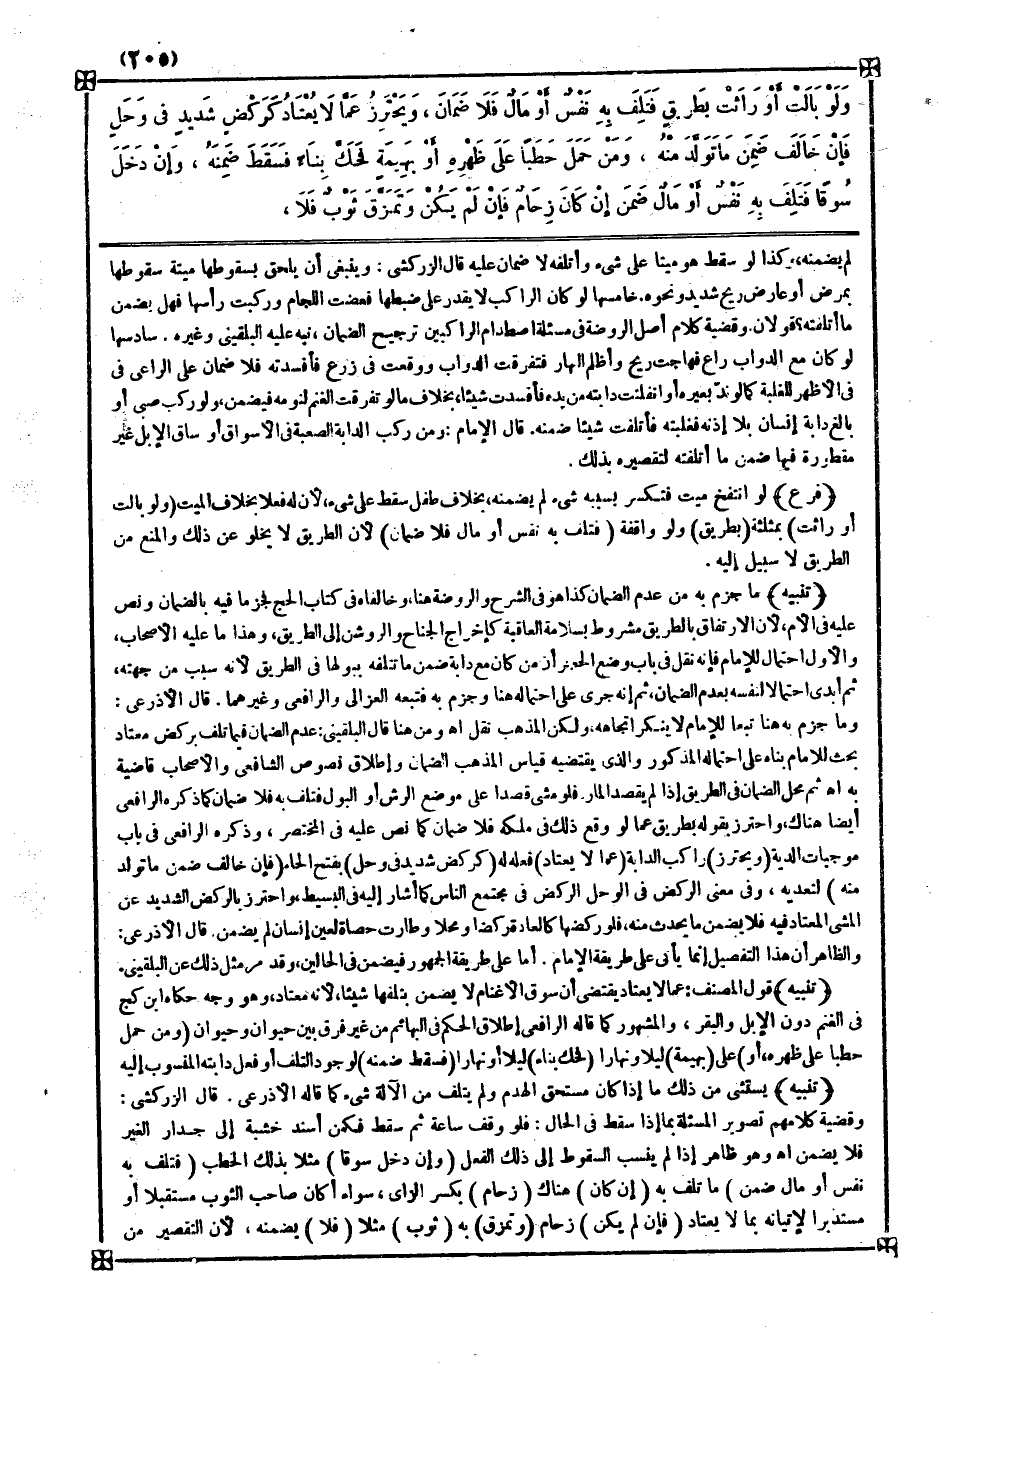 (٢٠٥)
وَلَوْ بَالَتْ أَوْ رَاثَتْ بِطَرِيقٍ فَتَلِفَ بِهِ نَفْسٌ أَوْ مَالٌ فَلَا ضَمَانَ ، وَيَحْتَرِزُ عَمَّا لَا يُعْتَادُ كَرَكْضٍ شَدِيدٍ فِى وَحَلٍ
فَإِنْ خَالَفَ ضَمِنَ مَا تَوَلَّدَ مِنْهُ ، وَمَنْ حَمَلَ حَطَبًا عَلَى ظَهْرِهِ أَوْ بَهِيمَةٍ فَحَكَّ بِنَاءً فَسَقَطَ ضَمِنَهُ ، وَإِنْ دَخَلَ
سُوقًا فَتَلِفَ بِهِ نَفْسٌ أَوْ مَالٌ ضَمِنَ إِنْ كَانَ زِحَامٌ فَإِنْ لَمْ يَكُنْ وَتَمَزَّقَ ثَوْبٌ فَلَا ،
لم يضمنه، وكذا لو سقط هو ميتا على شىء وأتلفه لا ضمان عليه قال الزركشى : وينبغى أن يلحق بسقوطها ميتة سقوطها
بمرض أو عارض ريح شديد ونحوه . خامسها لو كان الراكب لا يقدر على ضبطها فعضت اللجام وركبت رأسها فهل يضمن
ما أتلفته؟ قولان . وقضية كلام أصل الروضة فى مسئلة اصطدام الراكبين ترجيح الضمان ، نبه عليه البلقينى وغيره . سادسها
لو كان مع الدواب راع فهاجت ريح وأظلم النهار فتفرقت الدواب ووقعت فى زرع فأفسدته فلا ضمان على الراعى فى
فى الأظهر للغلبة كما لو ندّ بعيره أو انفلتت دابته من يده فأفسدت شيئا، بخلاف ما لو تفرقت الغنم لنومه فيضمن، ولو ركب صبى أو
بالغ دابة إنسان بلا إذنه فغلبته فأتلفت شيئا ضمنه. قال الإمام : ومن ركب الدابة الصعبة فى الأسواق أو ساق الإبل غير
مقطورة فيها ضمن ما أتلفته لتقصيره بذلك .
﴿فرع﴾ لو انتفخ ميت فتكسر بسببه شىء لم يضمنه، بخلاف طفل سقط على شىء، لأن له فعلا بخلاف الميت (ولو بالت
أو راثت) بمثلثة (بطريق) ولو واقفة ( فتلف به نفس أو مال فلا ضمان) لأن الطريق لا يخلو عن ذلك والمنع من
الطريق لا سبيل إليه .
﴿تنبيه﴾ ما جزم به من عدم الضمان كذا هو فى الشرح والروضة هنا، وخالفاه فى كتاب الحج فجزما فيه بالضمان ونص
عليه فى الأم، لأن الارتفاق بالطريق مشروط بسلامة العاقبة كإخراج الجناح والروشن إلى الطريق، وهذا ما عليه الأصحاب،
والأول احتمال للإمام فإنه نقل فى باب وضع الحجر أن من كان مع دابة ضمن ما تتلفه ببولها فى الطريق لأنه سبب من جهته،
ثم أبدى احتمالا لنفسه بعدم الضمان، ثم إنه جرى على احتماله هنا وجزم به فتبعه الغزالى والرافعى وغيرهما . قال الأذرعى :
وما جزم به هنا تبعا للإمام لا ينكر اتجاهه، ولكن المذهب نقل اه ومن هنا قال البلقينى: عدم الضمان فيما تلف بركض معتاد
بحث للإمام بناه على احتماله المذكور والذى يقتضيه قياس المذهب الضمان وإطلاق نصوص الشافعى والأصحاب قاضية
به اه ثم محل الضمان فى الطريق إذا لم يقصد المار. فلو مشى قصدا على موضع الرش أو البول فتلف به فلا ضمان كما ذكره الرافعى
أيضا هناك، واحترز بقوله بطريق عما لو وقع ذلك فى ملكه فلا ضمان كما نص عليه فى المختصر ، وذكره الرافعى فى باب
موجبات الدية (ويحترز) راكب الدابة (عما لا يعتاد) فعله له (كركض شديد فى وحل) بفتح الحاء (فإن خالف ضمن ما تولد
منه ) لتعديه ، وفى معنى الركض فى الوحل الركض فى مجتمع الناس كما أشار إليه فى البسيط، واحترز بالركض الشديد عن
المشى المعتاد فيه فلا يضمن ما يحدث منه، فلو ركضها كالعادة ركضا ومحلا وطارت حصاة لعين إنسان لم يضمن. قال الأذرعى:
والظاهر أن هذا التفصيل إنما يأتى على طريقة الإمام . أما على طريقة الجمهور فيضمن فى الحالين، وقد مر مثل ذلك عن البلقينى.
﴿تنبيه﴾ قول المصنف : عما لا يعتاد يقتضى أن سوق الأغنام لا يضمن بتلفها شيئا، لأنه معتاد، وهو وجه حكاه ابن كج
فى الغنم دون الإبل والبقر ، والمشهور كما قاله الرافعى إطلاق الحكم فى البهائم من غير فرق بين حيوان وحيوان (ومن حمل
حطبا على ظهره، أو) على (بهيمة) ليلا ونهارا (فحك بناء) ليلا أو نهارا (فسقط ضمنه) لوجود التلف أو فعل دابته المنسوب إليه
﴿تنبيه﴾ يستثنى من ذلك ما إذا كان مستحق الهدم ولم يتلف من الآلة شىء كما قاله الأذرعى . قال الزركشى :
وقضية كلامهم تصوير المسئلة بما إذا سقط فى الحال : فلو وقف ساعة ثم سقط فكمن أسند خشبة إلى جدار الغير
فلا يضمن اه وهو ظاهر إذا لم ينسب السقوط إلى ذلك الفعل (وإن دخل سوقا ) مثلا بذلك الحطب ( فتلف به
نفس أو مال ضمن ) ما تلف به ( إن كان ) هناك ( زحام ) بكسر الزاى ، سواء أكان صاحب الثوب مستقبلا أو
مستدبرا لإتيانه بما لا يعتاد ( فإن لم يكن ) زحام (وتمزق) به ( ثوب ) مثلا ( فلا ) يضمنه ، لأن التقصير من